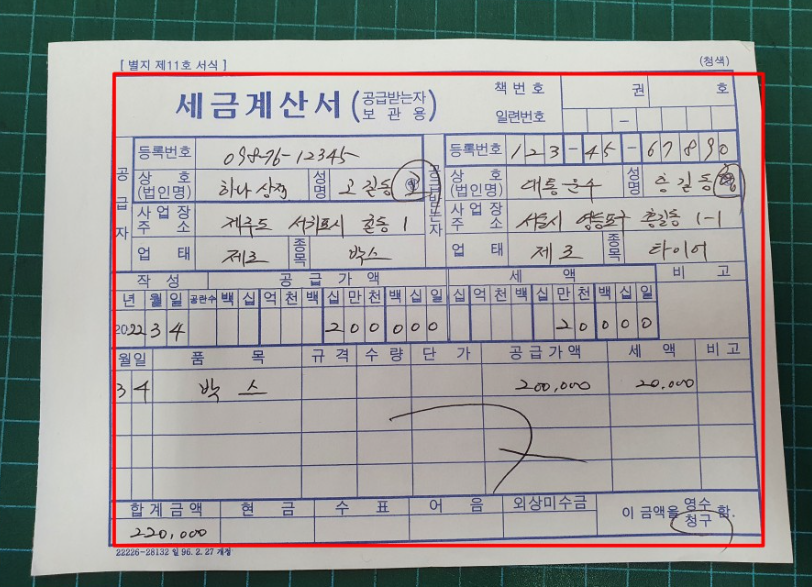 [ 별지 제11호 서식 ] (청색)
세금계산서 (공급받는자 보관용) 책번호 권 호
일련번호 -
공급자 등록번호 098-76-12345 공급받는자 등록번호 123-45-67890
상호 (법인명) 하나상점 성명 고길동 상호 (법인명) 대통운수 성명 홍길동
사업장 주소 제주도 서귀포시 1 사업장 주소 서울시 영등포구 홍길동 1-1
업태 제조 종목 박스 업태 제조 종목 타이어
작성 공급가액 세액 비고
년 월 일 공란수 백 십 억 천 백 십 만 천 백 십 일 십 억 천 백 십 만 천 백 십 일
2022 3 4 2 0 0 0 0 0 2 0 0 0 0
월일 품목 규격 수량 단가 공급가액 세액 비고
3 4 박스 200,000 20,000
합계금액 현금 수표 어음 외상미수금 이 금액을 영수 청구 함.
220,000
22226-28132 일 96. 2. 27 개정